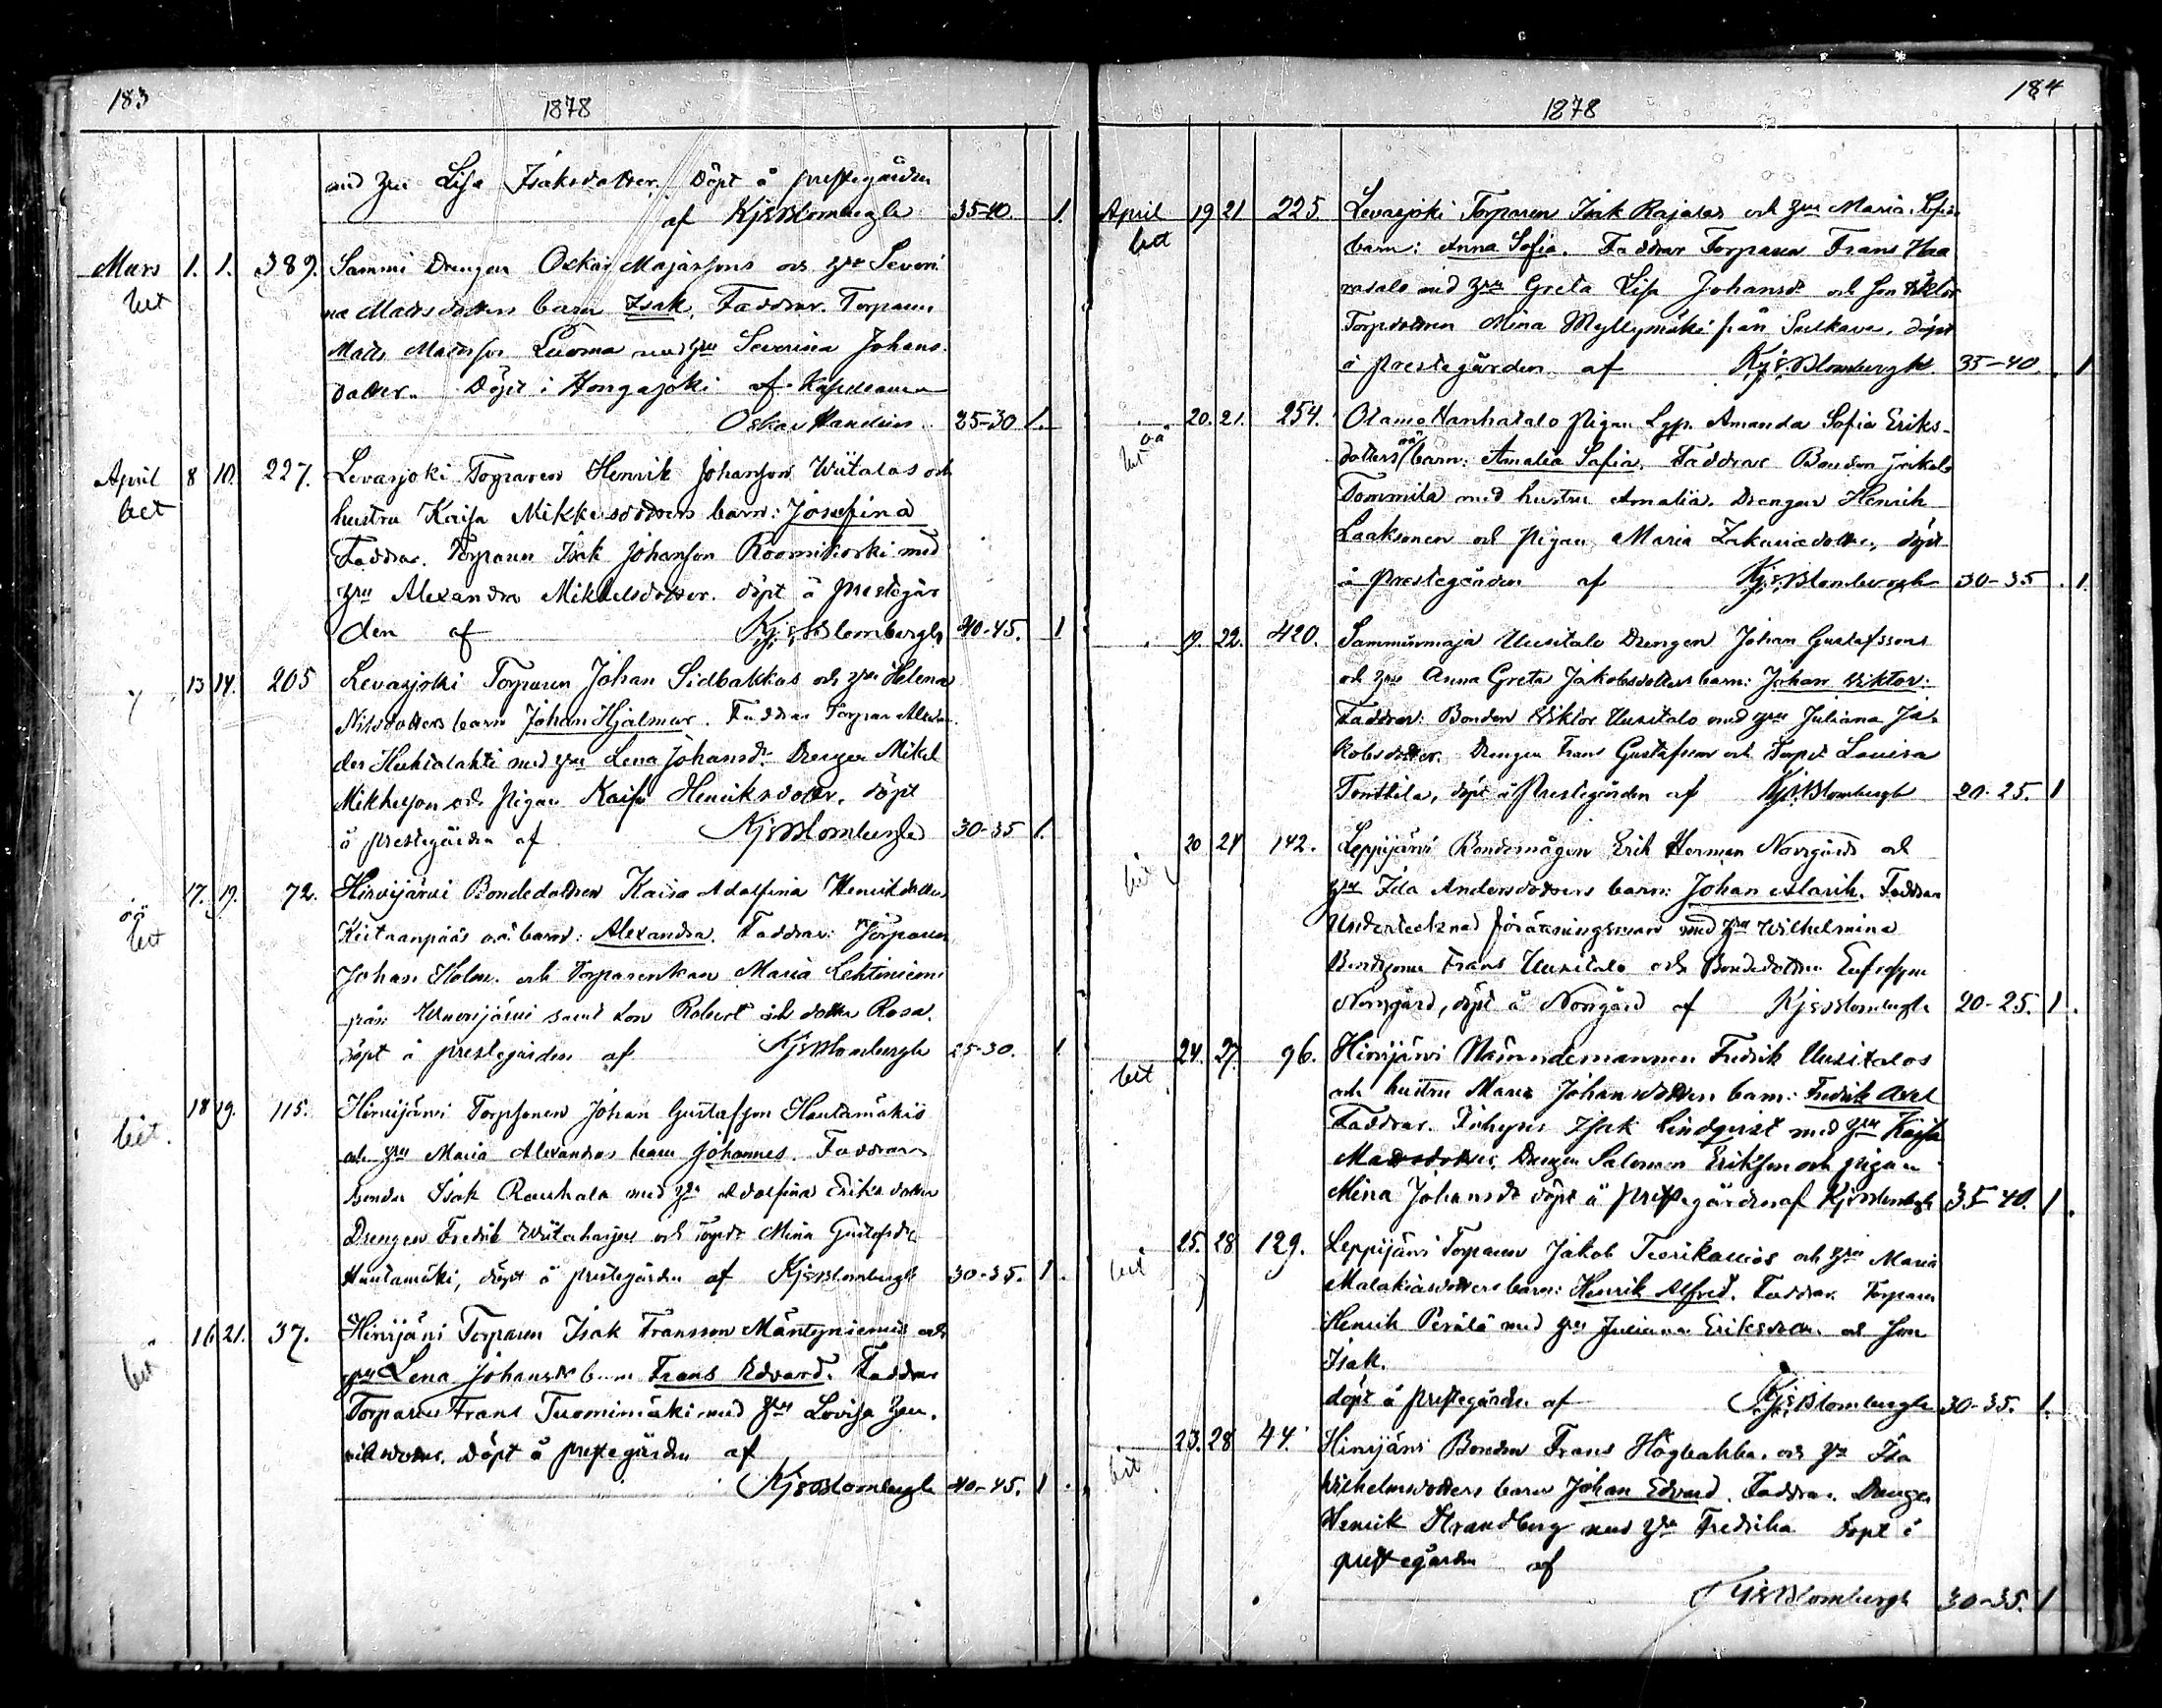 183
1878
med hru Lisa Isaksdotter. Döpt å prestegården
af KjEBlombergh 35-40. 1.
Mars 1. 1. 389. Sammi Drengen Oskar Majanssons och hru Severi
bet na Mattsdotters barn Isak. Faddrar. Torparen
Matts Mattsson Luoma med hru Severina Johans
dotter. Döpt i Hongajoki af Kapellanen
Oskar Handein 25-30 1.
April 8 10. 227. Levasjoki Torparen Henrik Johansson Wiitalas och
bet hustru Kaisa Mikkelsdotters barn: Josefina
Faddrar. Torparen Isak Johansson Roomikoski med
hru Alexandra Mikkelsdotter. döpt å prestegår
den af Kj.E.Blombergh 40-45. 1
13 14. 205 Levasjoki Torparen Johan Sidbakkas och hru Helena
Nilsdotters barn Johan Hjalmar. Faddrar Torpar Alexan
der Huhtalahti med hru Lena Johansd. Drengen Mikel
Mikkelson och pigan Kaisa Henriksdotter, döpt
å prestegården af KjEBlombergh 30-35 1.
17. 19. 72. Hirvijärvi Bondedottren Kaisa Adolfina Henriksdotter
oä
bet Kiitaanpääs o.ä. barn: Alexandra. Faddrar: Torparen
Johan Holm och Torparenkan Maria Lehtiniemi
från samt son Robert och dotter Rosa.
döpt å prestegården af KjEBlombergh 25-30. 1
18 19. 115. Hirvijärvi Torpsonen Johan Gustafsson Hautamäkis
bet. och hru Maria Alexandras barn Johannes. Faddrar
bonden Isak Rauhala med hru Adolfina Eriksdotter
Drengen Fredrik Wiitaharju och Torpd. Mina Gustafsdr
Hautamäki, döpt å prestegården af KjEBlombergh 30-35. 1.
16 21. 37. Hirvijärvi Torparen Isak Fransson Mäntyniemis och
bet hru Lena Johansdr barn Frans Edvard. Faddrar
Torparen Frans Tuomimäki med hru Lovisa Hen.
riksdotter. Döpt å prestegården af
KjEBlombergh 40-45. 1.
184
1878
April 19 21 225. Levasjoki Torparen Isak Rajalas och hru Maria Sofias
bet barn: Anna Sofia. Faddrar Torparen Frans Haa
rasalo med hru Greta Lisa Johansdr och son Viktor
Torpdottren Mina Myllymäki från Sulkava. döpt
å prestegården af Kj.E.Blombergh 35-40. 1
20. 21. 254. Otamo Hanhatalo pigan Lgp. Amanda Sofia Eriks-
oä
bet dotters oä barn: Amalia Sofia. Faddrar Bonden
Tommila med hustru Amalia. Drengen Henrik
Laaksonen och pigan Maria Zakariadotter, döpt
å prestegården af Kj.E.Blombergh 30-35. 1.
19. 22. 420. Sammiinmaja Uusitalo Drengen Johan Gustafssons
och hru Anna Greta Jakobsdotters barn: Johan Viktor.
Faddrar: Bonden Viktor Uusitalo med hru Juliana Ja-
kobsdotter. Drengen Frans Gustafsson och Torpd. Lovisa
Tonttila, döpt å Prestegården af KjEBlombergh 20-25. 1
20 24 142. Leppijärvi Bondemågen Erik Herman Norrgårds och
bet hru Ida Andersdotters barn: Johan Alarik. Faddrar
Undertecknad förrättningsman med hru Wilhelmina
Bondsonen Frans Uusitalo och Bondedottren Eufrosyne
Norrgård, döpt å Norrgård af KjEBlombergh 20-25. 1.
24. 27. 96. Hirvijärvi Nämndemannen Fredrik Uusitalos
bet och hustru Maria Johansdotters barn: Fredrik Axel
Faddrar. Inhyses Isak Lindqvist med hru Kajsa
Mattsdotter, Drengen Salomon Eriksson och pigan
Mina Johansdr döpt å prestegården af KjEBlombergh 35-40. 1.
25. 28 129. Leppijärvi Torparen Jakob Teerikallios och hru Maria
bet Malakiasdotters barn: Henrik Alfred. Faddrar Torparen
Henrik Perälä med hru Juliana Eriksdotter och son
Isak.
döpt å prestegården af KjEBlombergh 30-35. 1.
23. 28 44. Hirvijärvi Bonden Frans Högbakka och hru Ida
bet Wilhelmsdotters barn Johan Edvard. Faddrar. Drengen
Henrik Strandberg med hru Fredrika döpt å
prestegården af
KjEBlombergh 30-35. 1